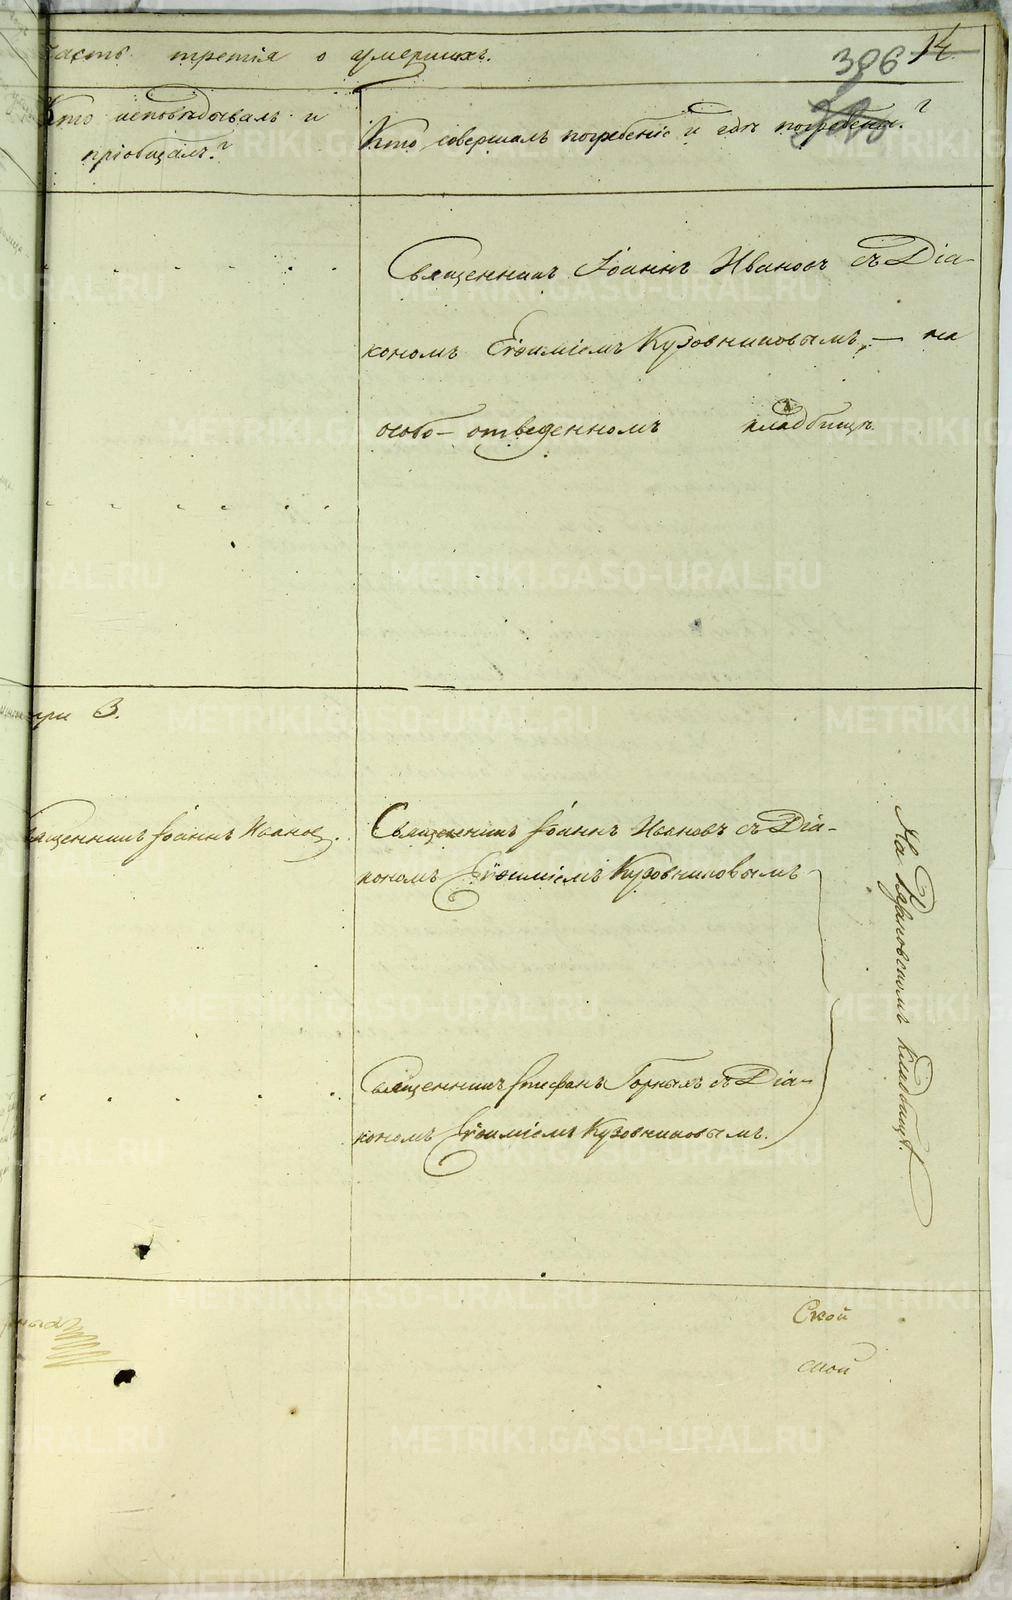 часть третія о умершихъ.
386 14
Кто исповѣдывалъ и
пріобщалъ?
Кто совершалъ погребеніе и гдѣ погребены?
Священникъ Іоаннъ Ивановъ съ Діа-
кономъ Евѳиміемъ Кузовниковымъ, — на
особо-отведенномъ кладбищѣ
при 3.
Священникъ Іоаннъ Ивановъ.
Священникъ Іоаннъ Ивановъ съ Діа-
кономъ Евѳиміемъ Кузовниковымъ
Священникъ Стефанъ Горныхъ съ Діа-
кономъ Евѳиміемъ Кузовниковымъ.
На кладбищѣ.
Ской
ской
METRIKI.GASO-URAL.RU